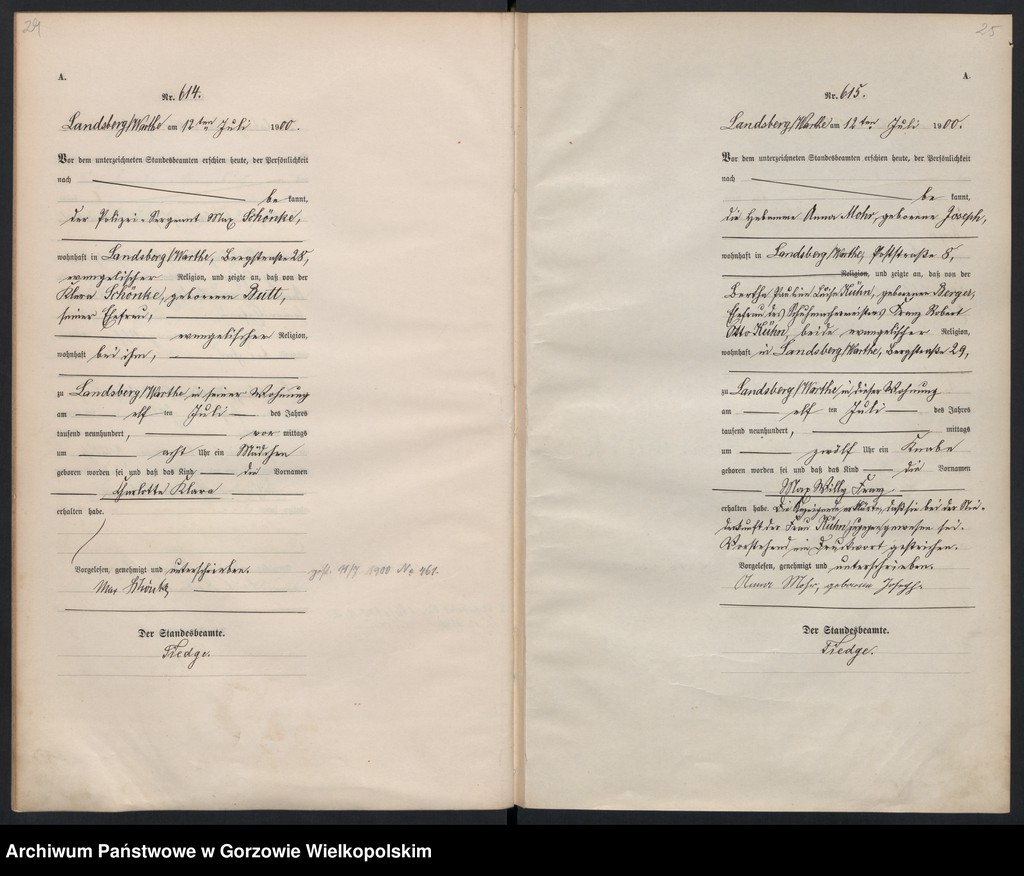 24
A.
Nr. 614.
Landsberg/Warthe am 12ten Juli 1900.
Vor dem unterzeichneten Standesbeamten erschien heute, der Persönlichkeit
nach
be kannt,
der Polizei-Sergeant Max Schönke,
wohnhaft in Landsberg/Warthe, Bergstraße 28,
evangelischer Religion, und zeigte an, daß von der
Klara Schönke, geborenen Butt,
seiner Ehefrau,
evangelischer Religion,
wohnhaft bei ihm,
zu Landsberg/Warthe in seiner Wohnung
am elf ten Juli des Jahres
tausend neunhundert, vor mittags
um acht Uhr ein Mädchen
geboren worden sei und daß das Kind die Vornamen
Charlotte Klara
erhalten habe.
Vorgelesen, genehmigt und unterschrieben.
Max Schönke
gest. 1900 Nr. 461.
Der Standesbeamte.
Tiedge.
25
A.
Nr. 615.
Landsberg/Warthe am 12ten Juli 1900.
Vor dem unterzeichneten Standesbeamten erschien heute, der Persönlichkeit
nach
be kannt,
die Hebamme Anna Mohr, geborene Joseph,
wohnhaft in Landsberg/Warthe, Poststraße 8,
Religion, und zeigte an, daß von der
Bertha Pauline Luise Kühn, geborenen Berger,
Ehefrau des Schuhmachermeisters Franz Robert
Otto Kühn, beide evangelischer Religion,
wohnhaft in Landsberg/Warthe, Bergstraße 29,
zu Landsberg/Warthe in dieser Wohnung
am elf ten Juli des Jahres
tausend neunhundert, mittags
um zwölf Uhr ein Knabe
geboren worden sei und daß das Kind die Vornamen
Max Willy Franz
erhalten habe. Die Anzeigende erklärte, daß sie bei der Nie-
derkunft der Frau Kühn zugegen gewesen sei.
Vorstehend ein Druckwort gestrichen.
Vorgelesen, genehmigt und unterschrieben.
Anna Mohr, geborene Joseph.
Der Standesbeamte.
Tiedge.
Archiwum Państwowe w Gorzowie Wielkopolskim